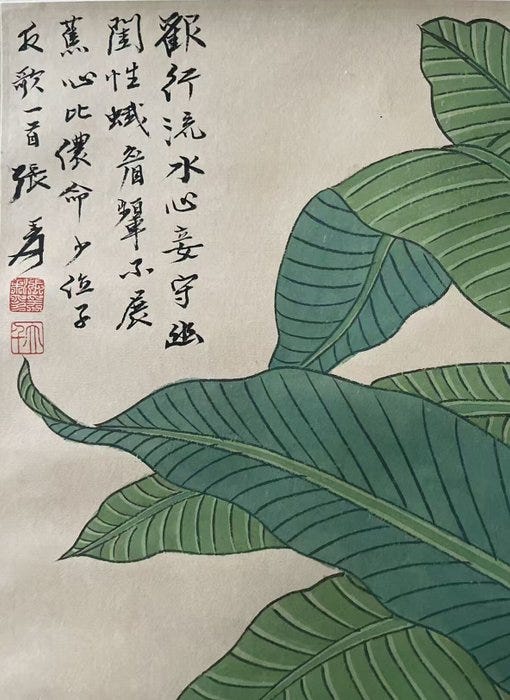 歡行流水心妾守幽
閨性蛾眉顰不展
蕉心比儂命 少作子
夜歌一首 張爰
大千